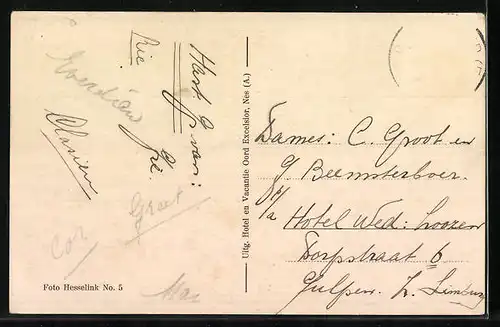 Hart. Gr. van:
Rie
Gré.
Evendien
Classien
Greet
Cor
Mar
Foto Hesselink No. 5
Uitg. Hotel en Vacantie Oord Excelsior, Nes (A.)
Dames: C. Groot en
G. Beemsterboer.
p/a
Hotel Wed:
Dorpstraat 6
Gulpen. Z. Limburg